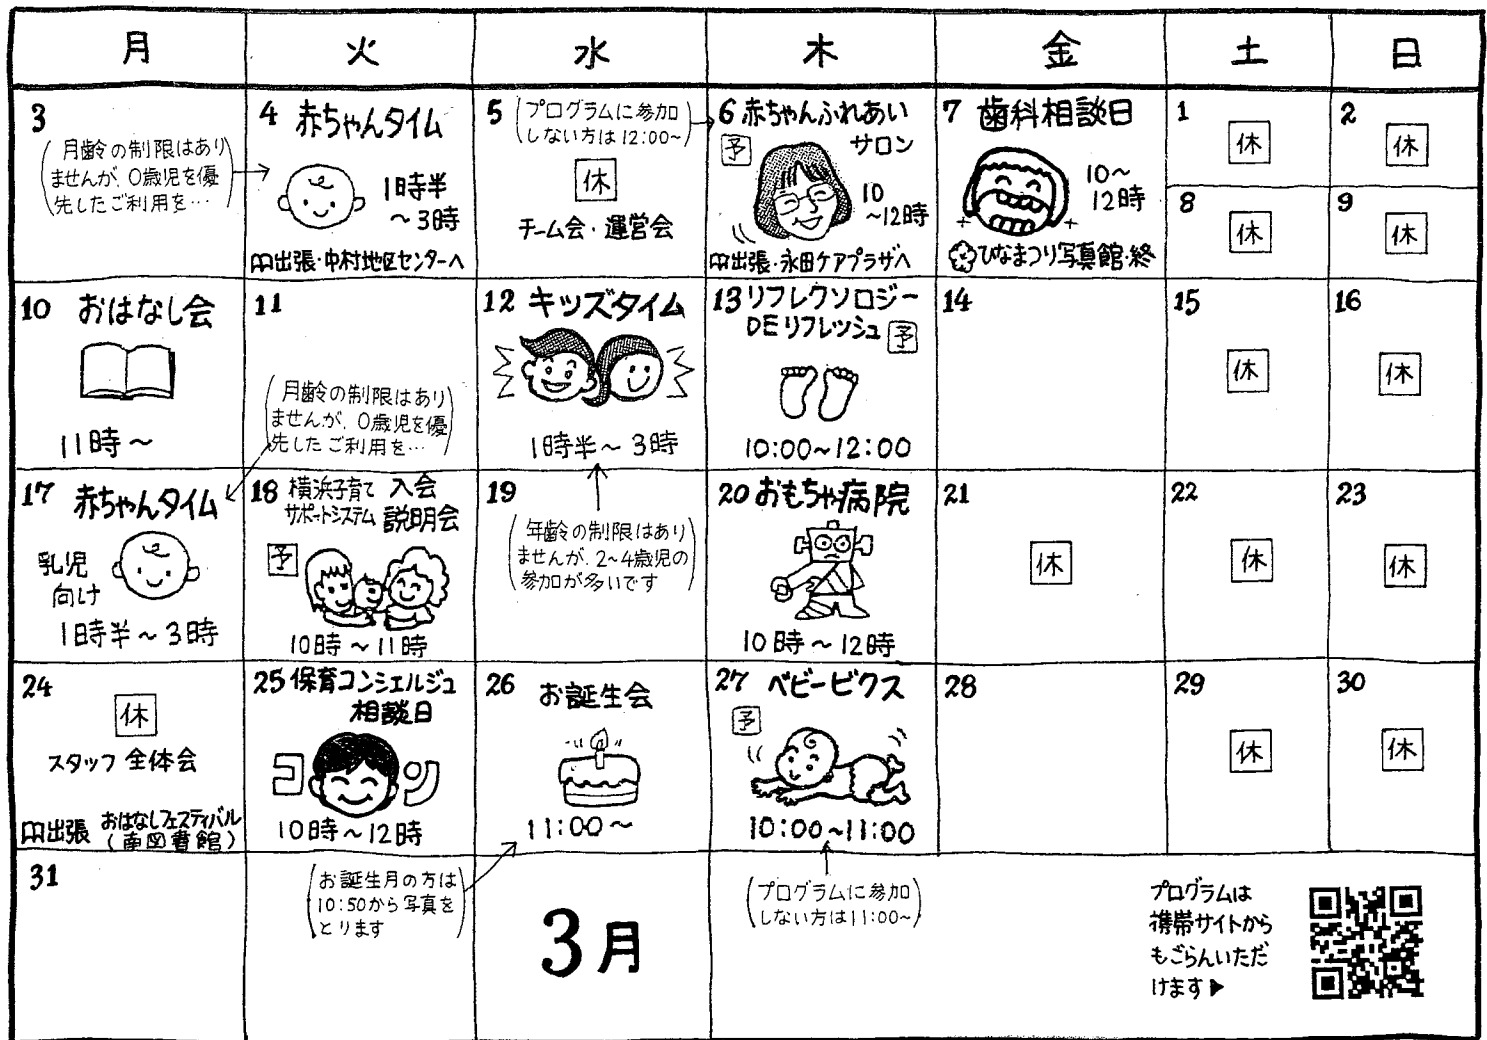 月 火 水 木 金 土 日
3
(月齢の制限はあり
ませんが、0歳児を優
先したご利用を…)
4 赤ちゃんタイム
1時半
～3時
出張・中村地区センターへ
5 (プログラムに参加
しない方は12:00~)
休
チーム会・運営会
6 赤ちゃんふれあい
サロン
予
10
~12時
出張・永田ケアプラザへ
7 歯科相談日
10~
12時
ひなまつり写真館・終
1
休
2
休
8
休
9
休
10 おはなし会
11時～
11
(月齢の制限はあり
ませんが、0歳児を優
先したご利用を…)
12 キッズタイム
1時半～3時
13 リフレクソロジー
DEリフレッシュ 予
10:00~12:00
14
15
休
16
休
17 赤ちゃんタイム
乳児
向け
1時半～3時
18 横浜子育て 入会
サポートシステム 説明会
予
10時～11時
19
(年齢の制限はあり
ませんが、2~4歳児の
参加が多いです)
20 おもちゃ病院
10時～12時
21
休
22
休
23
休
24
休
スタッフ全体会
出張 おはなしフェスティバル
(南図書館)
25 保育コンシェルジュ
相談日
コン
10時～12時
26 お誕生会
11:00～
27 ベビービクス
予
10:00~11:00
28
29
休
30
休
31
(お誕生月の方は
10:50から写真を
とります)
3月
(プログラムに参加
しない方は11:00~)
プログラムは
携帯サイトから
もごらんいただ
けます▶